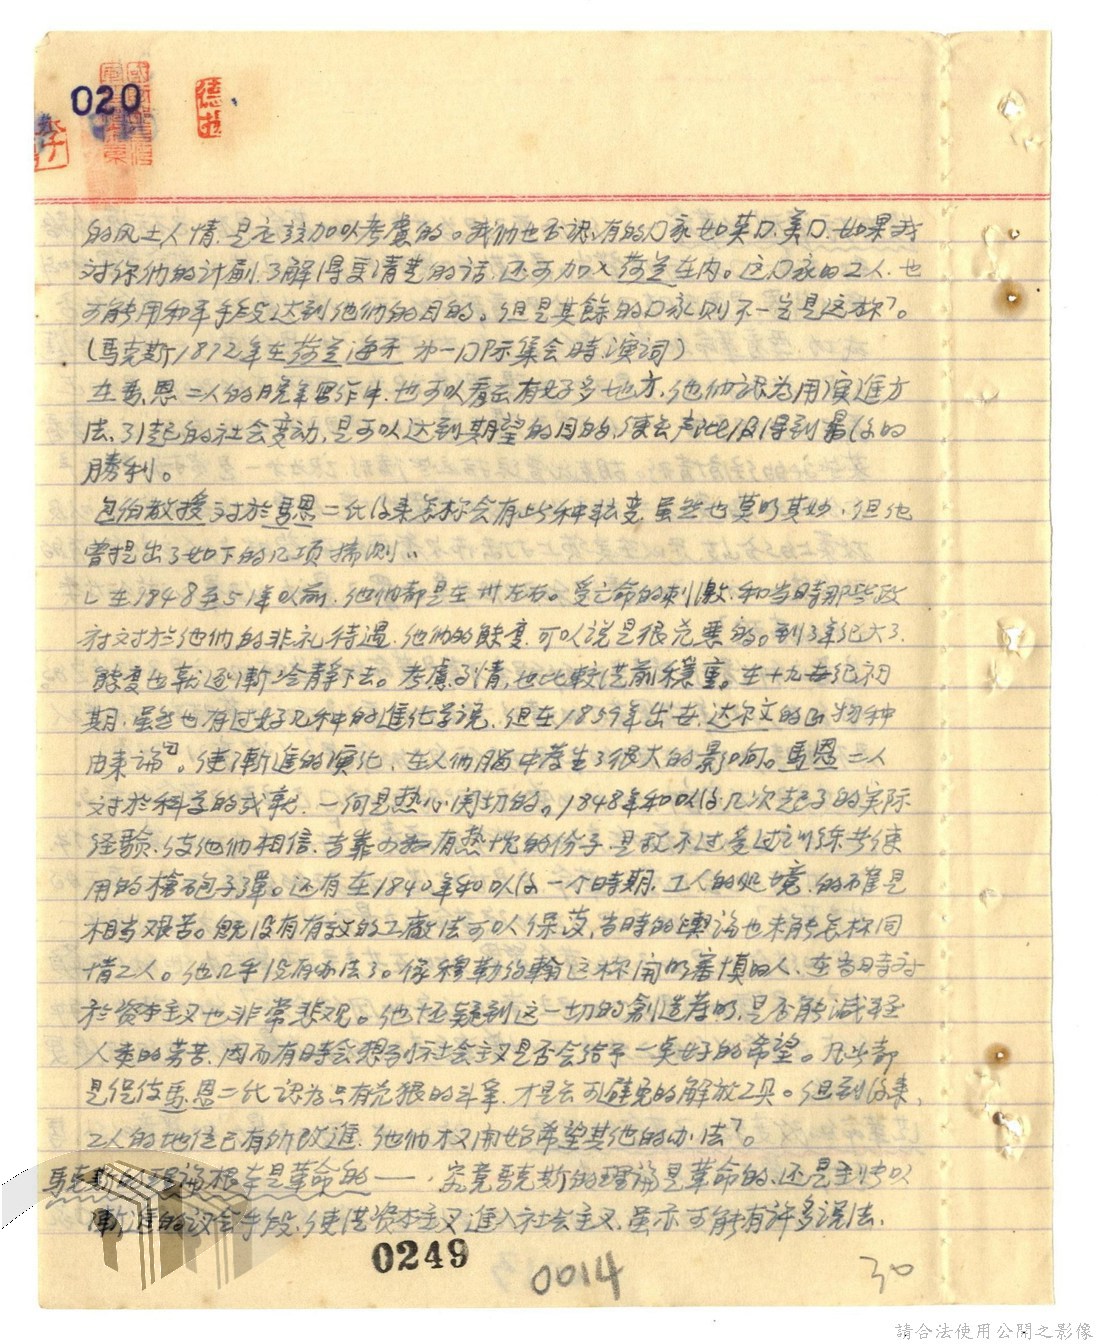 020
的风土人情,是应该加以考慮的。我们也否認,有的囗家如英囗,美囗,如果我
对你們的计劃,了解得更清楚的话,还可加入荷兰在内。这囗家的工人,也
可能用和平手段达到他们的目的。但是其餘的囗家则不一定是这样。
(馬克斯1872年在荷兰海牙为一囗际集会時演詞)
在馬,恩二人的晚年写作中,也可以看出有好多地方,他们認为用演進方
法,引起的社会变动,是可以达到期望的目的,使無产阶级得到最后的
勝利。
包伯教授对於馬恩二氏後來怎样会有此种转变,虽然也莫明其妙,但他
曾提出了如下的几项揣测:
在1848至51年以前,他们都是在卅左右。受亡命的刺激,和当時那些政
府对於他们的非礼待遇,他们的態度,可以说是很兇悪的。到了年纪大了,
態度也就逐漸冷静下去。考慮事情,也比較從前穩重。在十九世纪初
期,虽然也有过好几种的進化学说,但在1859年出世,达尔文的「物种
由来論」。使漸進的演化,在人们腦中产生了很大的影响。馬恩二人
对於科学的成就,一向是热心関切的。1848年和以後几次起事的实际
经驗,使他们相信,专靠少数有热忱的份子,是敌不过受过训练与使
用的槍砲子彈。还有在1840年和以後一个時期,工人的处境,的確是
相当艰苦。既没有有效的工廠法可以保護,当時的輿論也未能怎样同
情工人。他几乎没有办法了。像穆勒约翰这样開明審慎的人,在当時对
於資本主义也非常悲观。他怀疑到这一切的創造發明,是否能減轻
人类的劳苦,因而有時会想到社会主义是否会给予一矣好的希望。凡此都
是促使馬,恩二氏認为只有兇狠的斗争,才是無可避免的解放工具。但到後来,
工人的地位已有所改進,他们才又開始希望其他的办法。
馬克斯的理論根本是革命的——,究竟馬克斯的理論是革命的,还是主张以
漸進的議会手段,使從資本主义進入社会主义,虽亦可能有許多说法,
0249
0014
30
請合法使用公開之影像